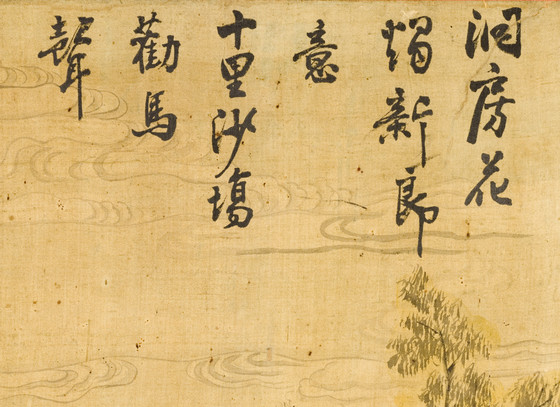 洞房花
燭新郎
意
十里沙場
勸馬
聲